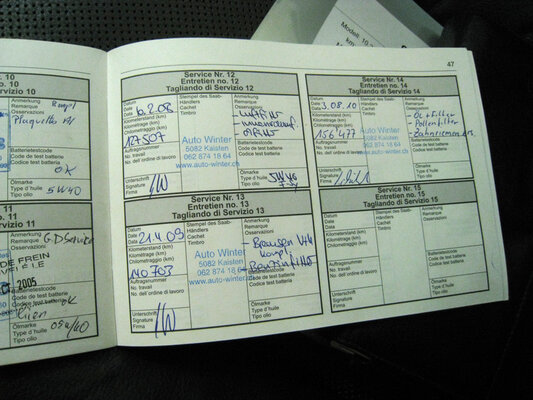 Modell:
47
10
no. 10
ervizio 10
Anmerkung
Remarque
Osservazioni
Batterietestcode
Code de test batterie
Codice test batteria
OK
Ölmarke
Type d'huile
Tipo olio
5W40
11
no. 11
ervizio 11
Anmerkung
Remarque
Osservazioni
DE FREIN
2005
Batterietestcode
Code de test batterie
Codice test batteria
OK
Ölmarke
Type d'huile
Tipo olio
Service Nr. 12
Entretien no. 12
Tagliando di Servizio 12
Datum
Date
Data
Stempel des Saab-
Händlers
Cachet
Timbro
Anmerkung
Remarque
Osservazioni
Kilometerstand (km)
Kilométrage (km)
Chilometraggio (km)
127507
Auto Winter
5082 Kaisten
062 874 18 64
www.autowinter.ch
Auftragsnummer
No. travail
No. dell'ordine di lavoro
Batterietestcode
Code de test batterie
Codice test batteria
OK
Unterschrift
Signature
Firma
Ölmarke
Type d'huile
Tipo olio
5W40
Service Nr. 13
Entretien no. 13
Tagliando di Servizio 13
Datum
Date
Data
21.4.09
Stempel des Saab-
Händlers
Cachet
Timbro
Anmerkung
Remarque
Osservazioni
Kilometerstand (km)
Kilométrage (km)
Chilometraggio (km)
140703
Auto Winter
5082 Kaisten
062 874 18 64
Auftragsnummer
No. travail
No. dell'ordine di lavoro
Batterietestcode
Code de test batterie
Codice test batteria
Unterschrift
Signature
Firma
Ölmarke
Type d'huile
Tipo olio
Service Nr. 14
Entretien no. 14
Tagliando di Servizio 14
Datum
Date
Data
3.08.10
Stempel des Saab-
Händlers
Cachet
Timbro
Anmerkung
Remarque
Osservazioni
- Öl + Filter
- Pollenfilter
Kilometerstand (km)
Kilométrage (km)
Chilometraggio (km)
156477
Auto Winter
5082 Kaisten
062 874 18 64
www.autowinter.ch
Auftragsnummer
No. travail
No. dell'ordine di lavoro
Batterietestcode
Code de test batterie
Codice test batteria
Unterschrift
Signature
Firma
Ölmarke
Type d'huile
Tipo olio
Service Nr. 15
Entretien no. 15
Tagliando di Servizio 15
Datum
Date
Data
Stempel des Saab-
Händlers
Cachet
Timbro
Anmerkung
Remarque
Osservazioni
Kilometerstand (km)
Kilométrage (km)
Chilometraggio (km)
Auftragsnummer
No. travail
No. dell'ordine di lavoro
Batterietestcode
Code de test batterie
Codice test batteria
Unterschrift
Signature
Firma
Ölmarke
Type d'huile
Tipo olio